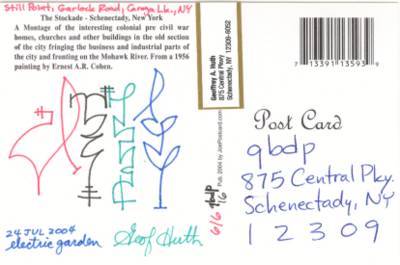 Still Point, Garlock Road, Caroga Lk., NY
The Stockade - Schenectady, New York
A Montage of the interesting colonial pre civil war
homes, churches and other buildings in the old section
of the city fringing the business and industrial parts of
the city and frenting on the Mohawk River. From a 1956
painting by Ernest A.R. Cohen.
24 JUL 2004
electric garden
Geof Huth
6/6
qbdp
/6
Pub. 2004 by JoePostcard.com
Geoffrey A. Huth
875 Central Pkwy
Schenectady, NY 12309-6052
7 13391 13593 9
Post Card
qbdp
875 Central Pky.
Schenectady, NY
12309